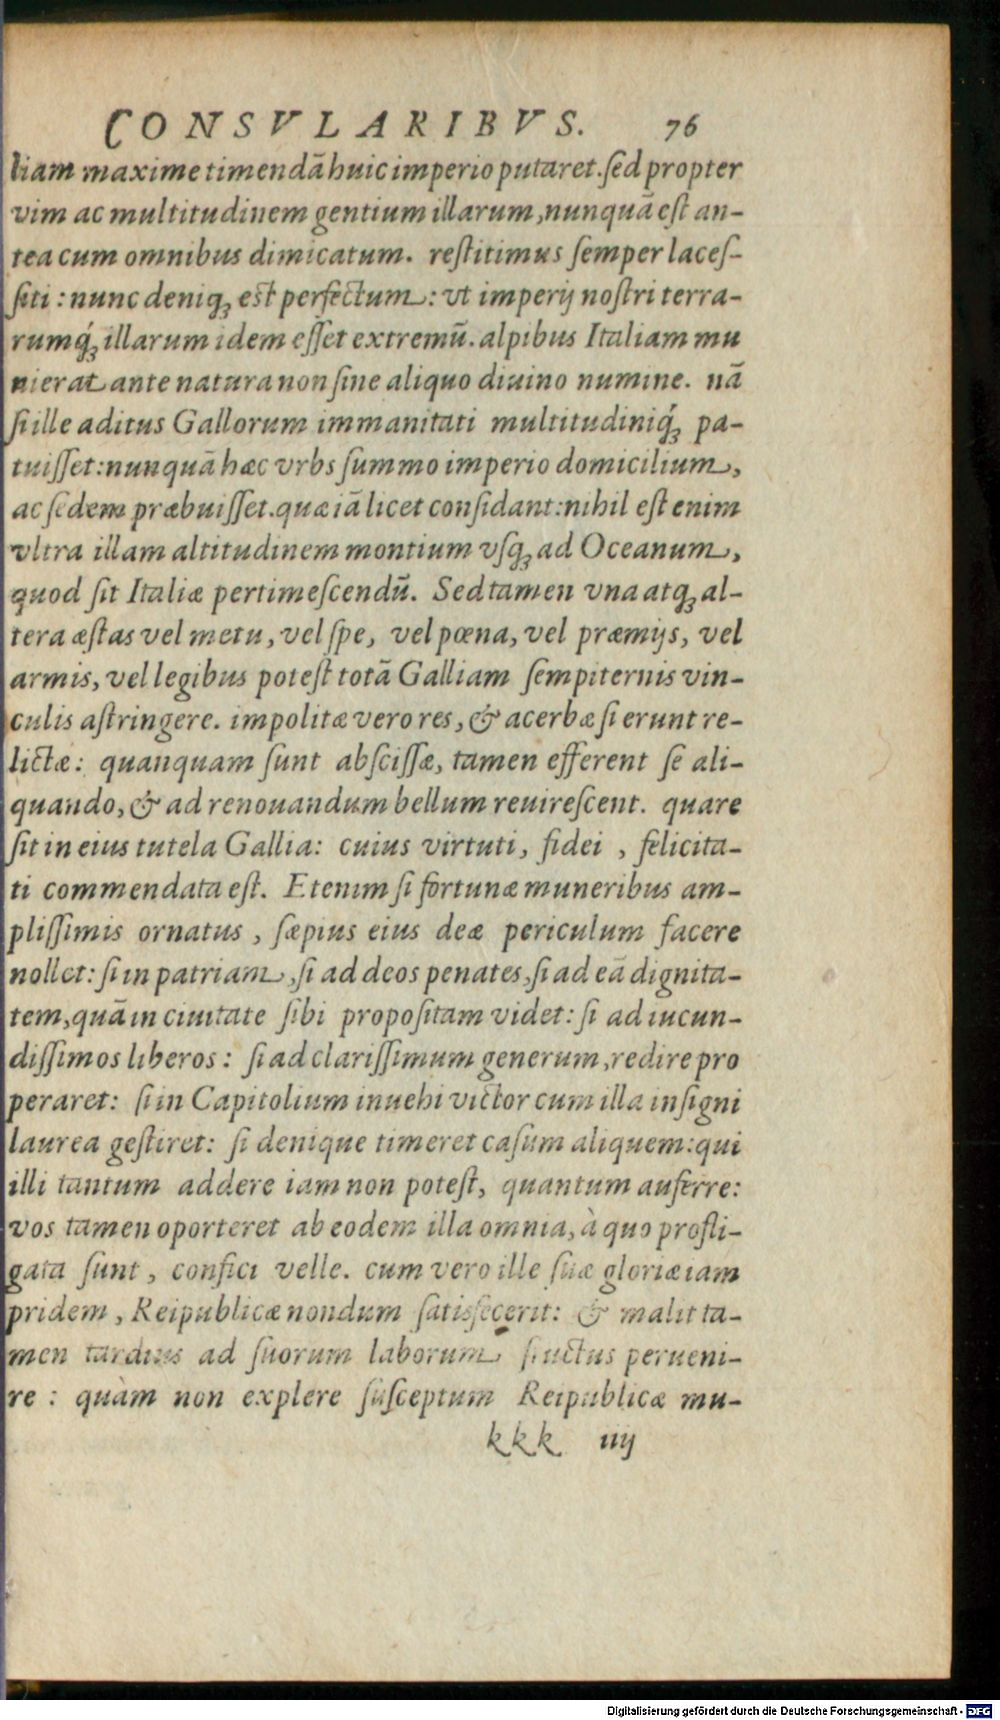 CONSVLARIBVS. 76
liam maxime timendā huic imperio putaret. sed propter
vim ac multitudinem gentium illarum, nunquā est an-
tea cum omnibus dimicatum. restitimus semper laces-
siti: nunc deniq; est perfectum: vt imperij nostri terra-
rumq́; illarum idem esset extremū. alpibus Italiam mu
nierat ante natura non sine aliquo diuino numine. nā
si ille aditus Gallorum immanitati multitudiniq́; pa-
tuisset: nunquā hæc vrbs summo imperio domicilium,
ac sedem præbuisset. quæ iā licet considant: nihil est enim
vltra illam altitudinem montium vsq; ad Oceanum,
quod sit Italiæ pertimescendū. Sed tamen vna atq; al-
tera æstas vel metu, vel spe, vel pœna, vel præmijs, vel
armis, vel legibus potest totā Galliam sempiternis vin-
culis astringere. impolitæ vero res, & acerbæ si erunt re-
lictæ: quanquam sunt abscissæ, tamen efferent se ali-
quando, & ad renouandum bellum reuirescent. quare
sit in eius tutela Gallia: cuius virtuti, fidei , felicita-
ti commendata est. Etenim si fortunæ muneribus am-
plissimis ornatus , sæpius eius deæ periculum facere
nollet: si in patriam, si ad deos penates, si ad eā dignita-
tem, quā in ciuitate sibi propositam videt: si ad iucun-
dissimos liberos: si ad clarissimum generum, redire pro
peraret: si in Capitolium inuehi victor cum illa insigni
laurea gestiret: si denique timeret casum aliquem: qui
illi tantum addere iam non potest, quantum auferre:
vos tamen oporteret ab eodem illa omnia, à quo profli-
gata sunt, confici velle. cum vero ille suæ gloriæ iam
pridem, Reipublicæ nondum satisfecerit: & malit ta-
men tardius ad suorum laborum fructus perueni-
re : quàm non explere susceptum Reipublicæ mu-
kkk iiij
Digitalisierung gefördert durch die Deutsche Forschungsgemeinschaft - DFG